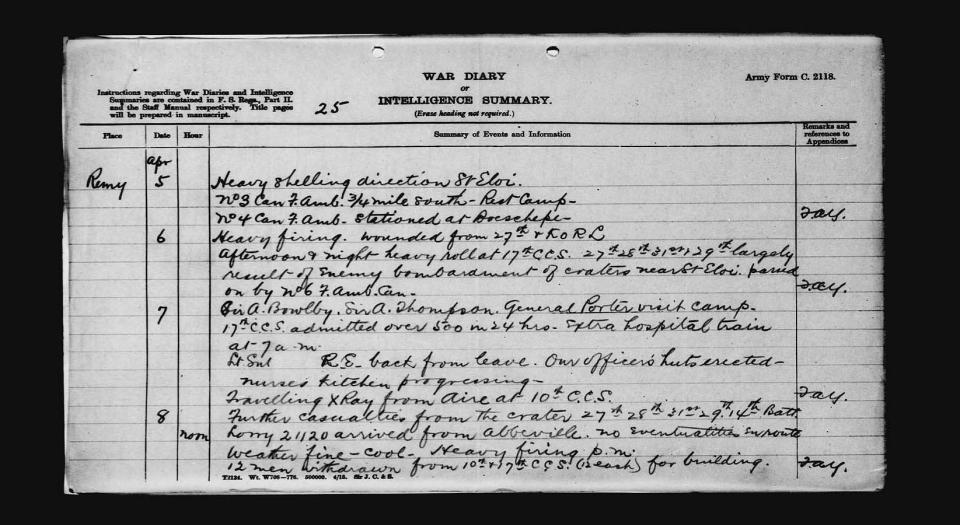 WAR DIARY
or
INTELLIGENCE SUMMARY.
(Erase heading not required.)
Army Form C. 2118.
Instructions regarding War Diaries and Intelligence
Summaries are contained in F. S. Regs., Part II.
and the Staff Manual respectively. Title pages
will be prepared in manuscript.
25
Place Date Hour Summary of Events and Information Remarks and references to Appendices
Apr
Remy 5 Heavy shelling direction St Eloi.
No 3 Can F. Amb. 3/4 mile south - Rest Camp -
No 4 Can F. Amb. stationed at Boeschepe -
6 Heavy firing. wounded from 27th & KORL
Afternoon & night heavy roll at 17th C.C.S. 27th 28th 31st & 29th largely
result of Enemy bombardment of craters near St Eloi. passed
on by No 6 F. Amb. Can.
7 Sir A. Bowlby. Sir A. Thompson. General Porter visit camp.
17th C.C.S. admitted over 500 in 24 hrs. Extra hospital train
at 7 a.m.
Lt R.E. back from leave. Our officers huts erected -
nurses kitchen progressing -
Travelling X Ray from Aire at 10th C.C.S.
8 Further casualties from the crater 27th 28th 31st 29th 14th Batt.
noon Lorry 21120 arrived from Abbeville. no eventualities enroute
Weather fine - cool - Heavy firing p.m.
12 men withdrawn from 10th & 17th C.C.S. (each) for building.
T2134. Wt. W708-776. 500000. 4/15. Sir J. C. & S.